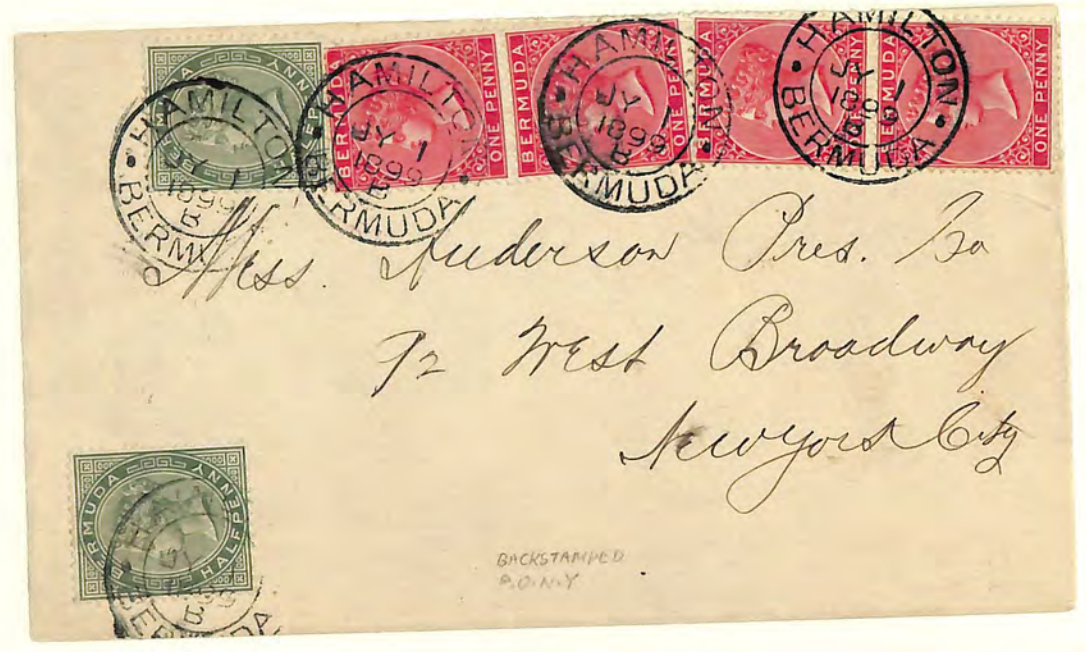 BERMUDA HALFPENNY
BERMUDA ONE PENNY
BERMUDA ONE PENNY
BERMUDA ONE PENNY
BERMUDA ONE PENNY
HAMILTON JY 1 1899 B BERMUDA
HAMILTON JY 1 1899 B BERMUDA
HAMILTON JY 1 1899 B BERMUDA
HAMILTON JY 1 1899 B BERMUDA
Mess. Anderson Pres. Co
92 West Broadway
New York City
BERMUDA HALFPENNY
HAMILTON 1899 B BERMUDA
BACKSTAMPED
P.O.N.Y